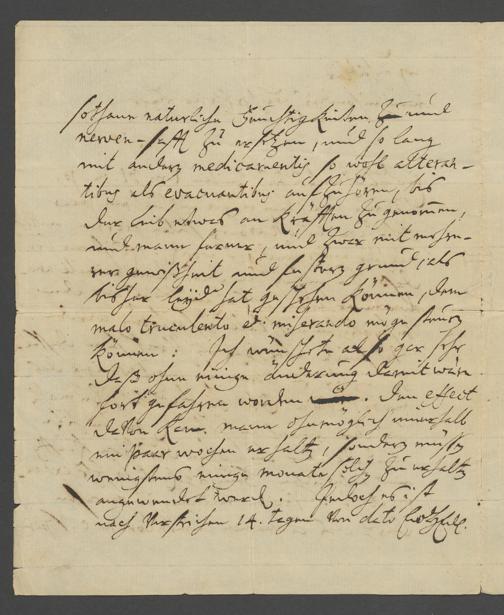 sothane naturliche Feuchtigkeiten zu und
nerven-safft zu ersetzen, und so lang
mit anderz medicamentis so wohl alteran-
tibus als evacuantibus aufzuhören, bis
der leib etwas an Kräfften zugenomen,
und mann ferner, und zwar mit mehre-
rer gewißheit und grund, als
bisher hat geschehen können, dem
malo truculento et miserando möge
können: Ich wünschte also gar sehr
daß ohne einige änderung damit wäre
fortgefahren worden. Den effect
davon kan mann ohnmöglich innerhalb
ein paar wochen erhalten, sondern
wenigstens einige monate zu
angewendet werd. Jedoch es ist
nach 14. tagen von dato